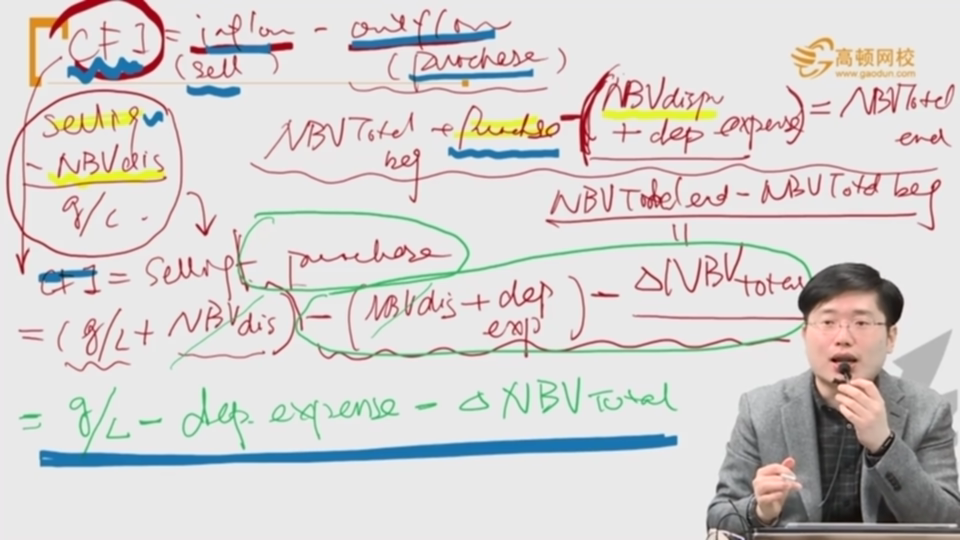 CFI = inflow - outflow
(sell) (purchase)
高顿网校
www.gaodun.com
selling
- NBVdis
g/L.
NBVTotal beg + purchase - (NBVdispn + dep expense) = NBVTotal end
NBVTotal end - NBVTotal beg
=
CFI = selling - purchase
= (g/L + NBVdis) - (NBVdis + dep exp) - ΔNBVTotal
= g/L - dep. expense - ΔNBVTotal